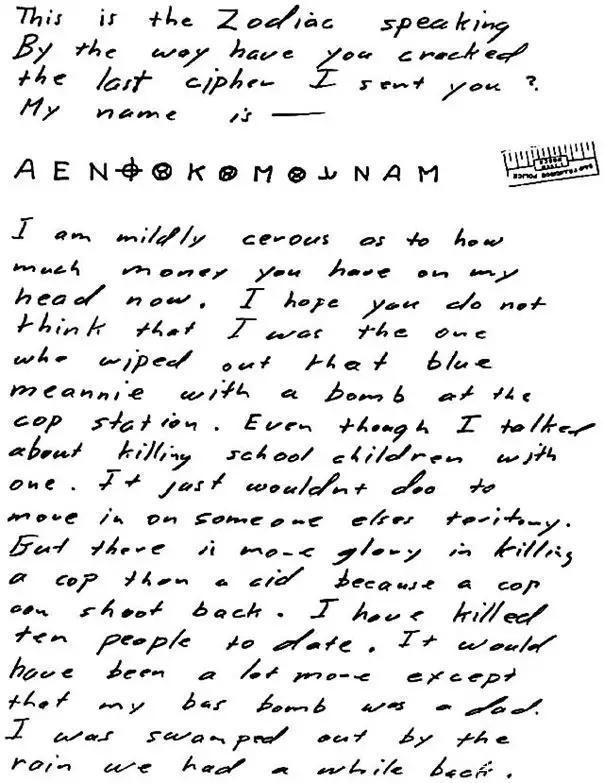 This is the Zodiac speaking
By the way have you cracked
the last cipher I sent you ?
My name is —
A E N ⌖ ⊗ K ⊗ M ⊗ N A M
I am mildly cerous as to how
much money you have on my
head now. I hope you do not
think that I was the one
who wiped out that blue
meannie with a bomb at the
cop station. Even though I talked
about killing school children with
one. It just wouldnt doo to
move in on someone elses teritory.
But there is more glory in killing
a cop than a cid because a cop
can shoot back. I have killed
ten people to date. It would
have been a lot more except
that my bus bomb was a dud.
I was swamped out by the
rain we had a while back.